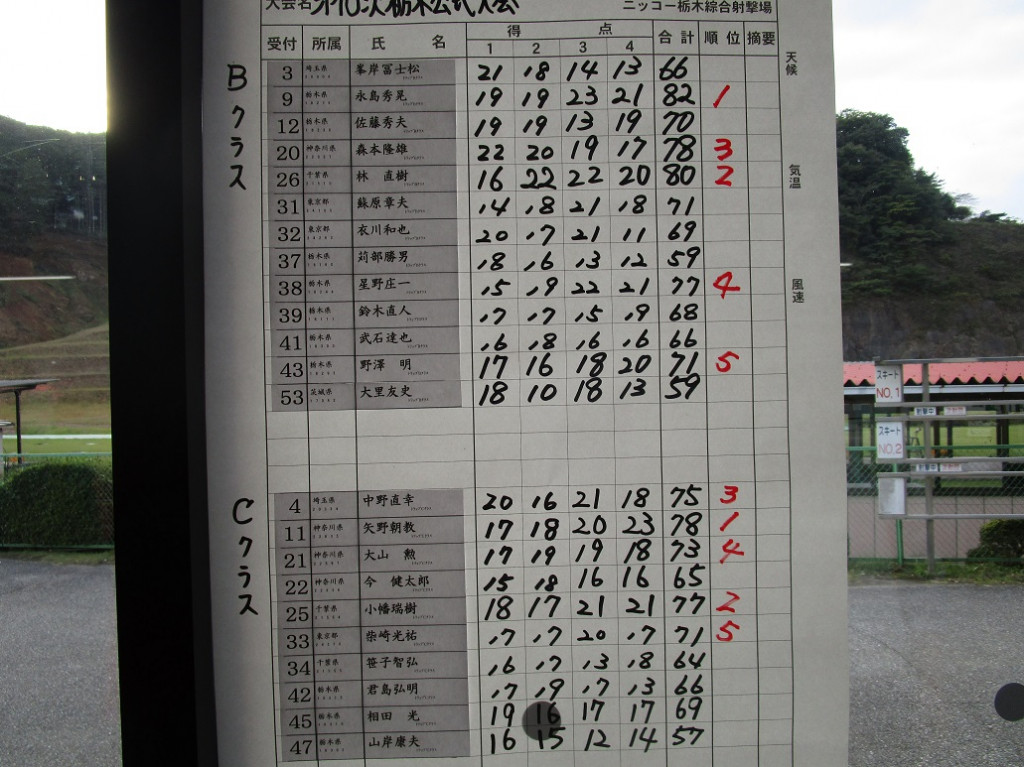 大会名 栃木公式大会 ニッコー栃木綜合射撃場
受付 所属 氏名 得点 合計 順位 摘要
1 2 3 4
天候
気温
風速
Bクラス
3 埼玉県 峯岸冨士松 21 18 14 13 66
9 栃木県 永島秀晃 19 19 23 21 82 1
12 栃木県 佐藤秀夫 19 19 13 19 70
20 神奈川県 森本隆雄 22 20 19 17 78 3
26 千葉県 林 直樹 16 22 22 20 80 2
31 東京都 蘇原章夫 14 18 21 18 71
32 東京都 衣川和也 20 17 21 11 69
37 栃木県 苅部勝男 18 16 13 12 59
38 栃木県 星野庄一 15 19 22 21 77 4
39 栃木県 鈴木直人 17 17 15 19 68
41 栃木県 武石達也 16 18 16 16 66
43 栃木県 野澤 明 17 16 18 20 71 5
53 茨城県 大里友史 18 10 18 13 59
Cクラス
4 埼玉県 中野直幸 20 16 21 18 75 3
11 神奈川県 矢野朝教 17 18 20 23 78 1
21 神奈川県 大山 勲 17 19 19 18 73 4
22 神奈川県 今 健太郎 15 18 16 16 65
25 千葉県 小幡瑞樹 18 17 21 21 77 2
33 東京都 柴崎光祐 17 17 20 17 71 5
34 千葉県 笹子智弘 16 17 13 18 64
42 栃木県 君島弘明 17 19 17 13 66
45 栃木県 相田 光 19 16 17 17 69
47 栃木県 山岸康夫 16 15 12 14 57
スキート
NO.1
スキート
NO.2